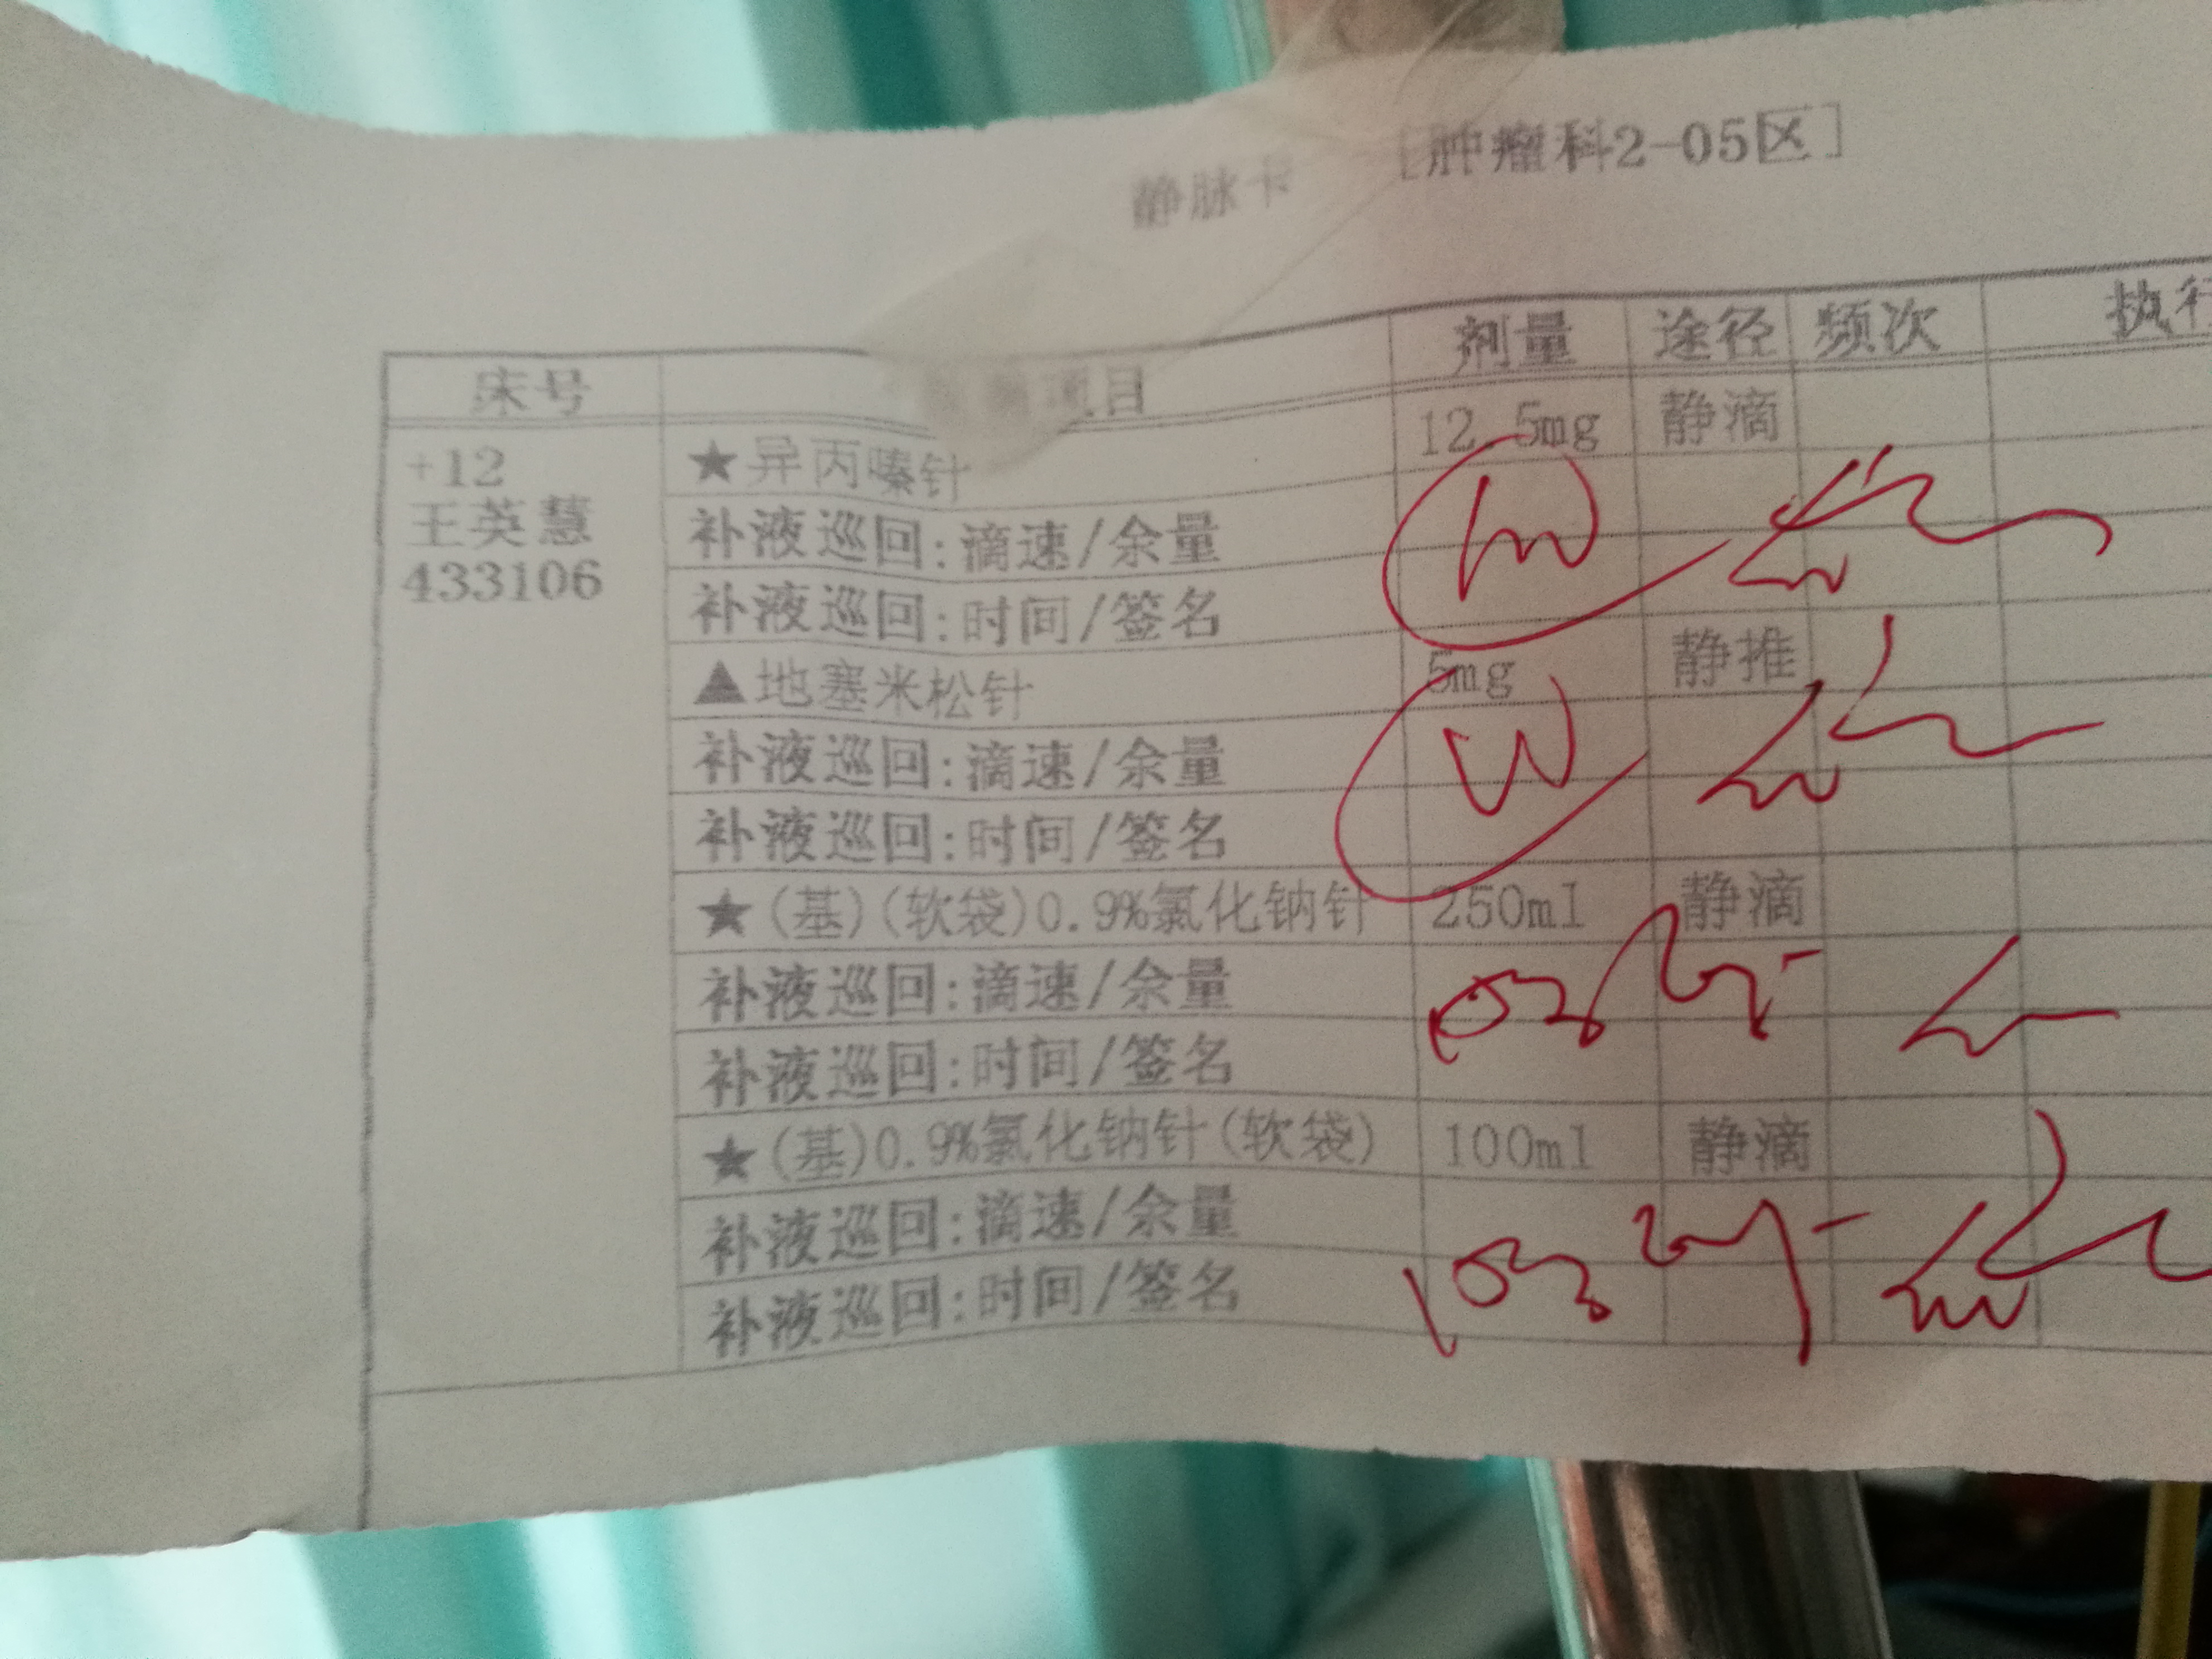 静脉卡 [肿瘤科2-05区]
床号 项目 剂量 途径 频次 执行
+12 ★异丙嗪针 12.5mg 静滴
王英慧 补液巡回:滴速/余量
433106 补液巡回:时间/签名
▲地塞米松针 5mg 静推
补液巡回:滴速/余量
补液巡回:时间/签名
★(基)(软袋)0.9%氯化钠针 250ml 静滴
补液巡回:滴速/余量
补液巡回:时间/签名
★(基)0.9%氯化钠针(软袋) 100ml 静滴
补液巡回:滴速/余量
补液巡回:时间/签名